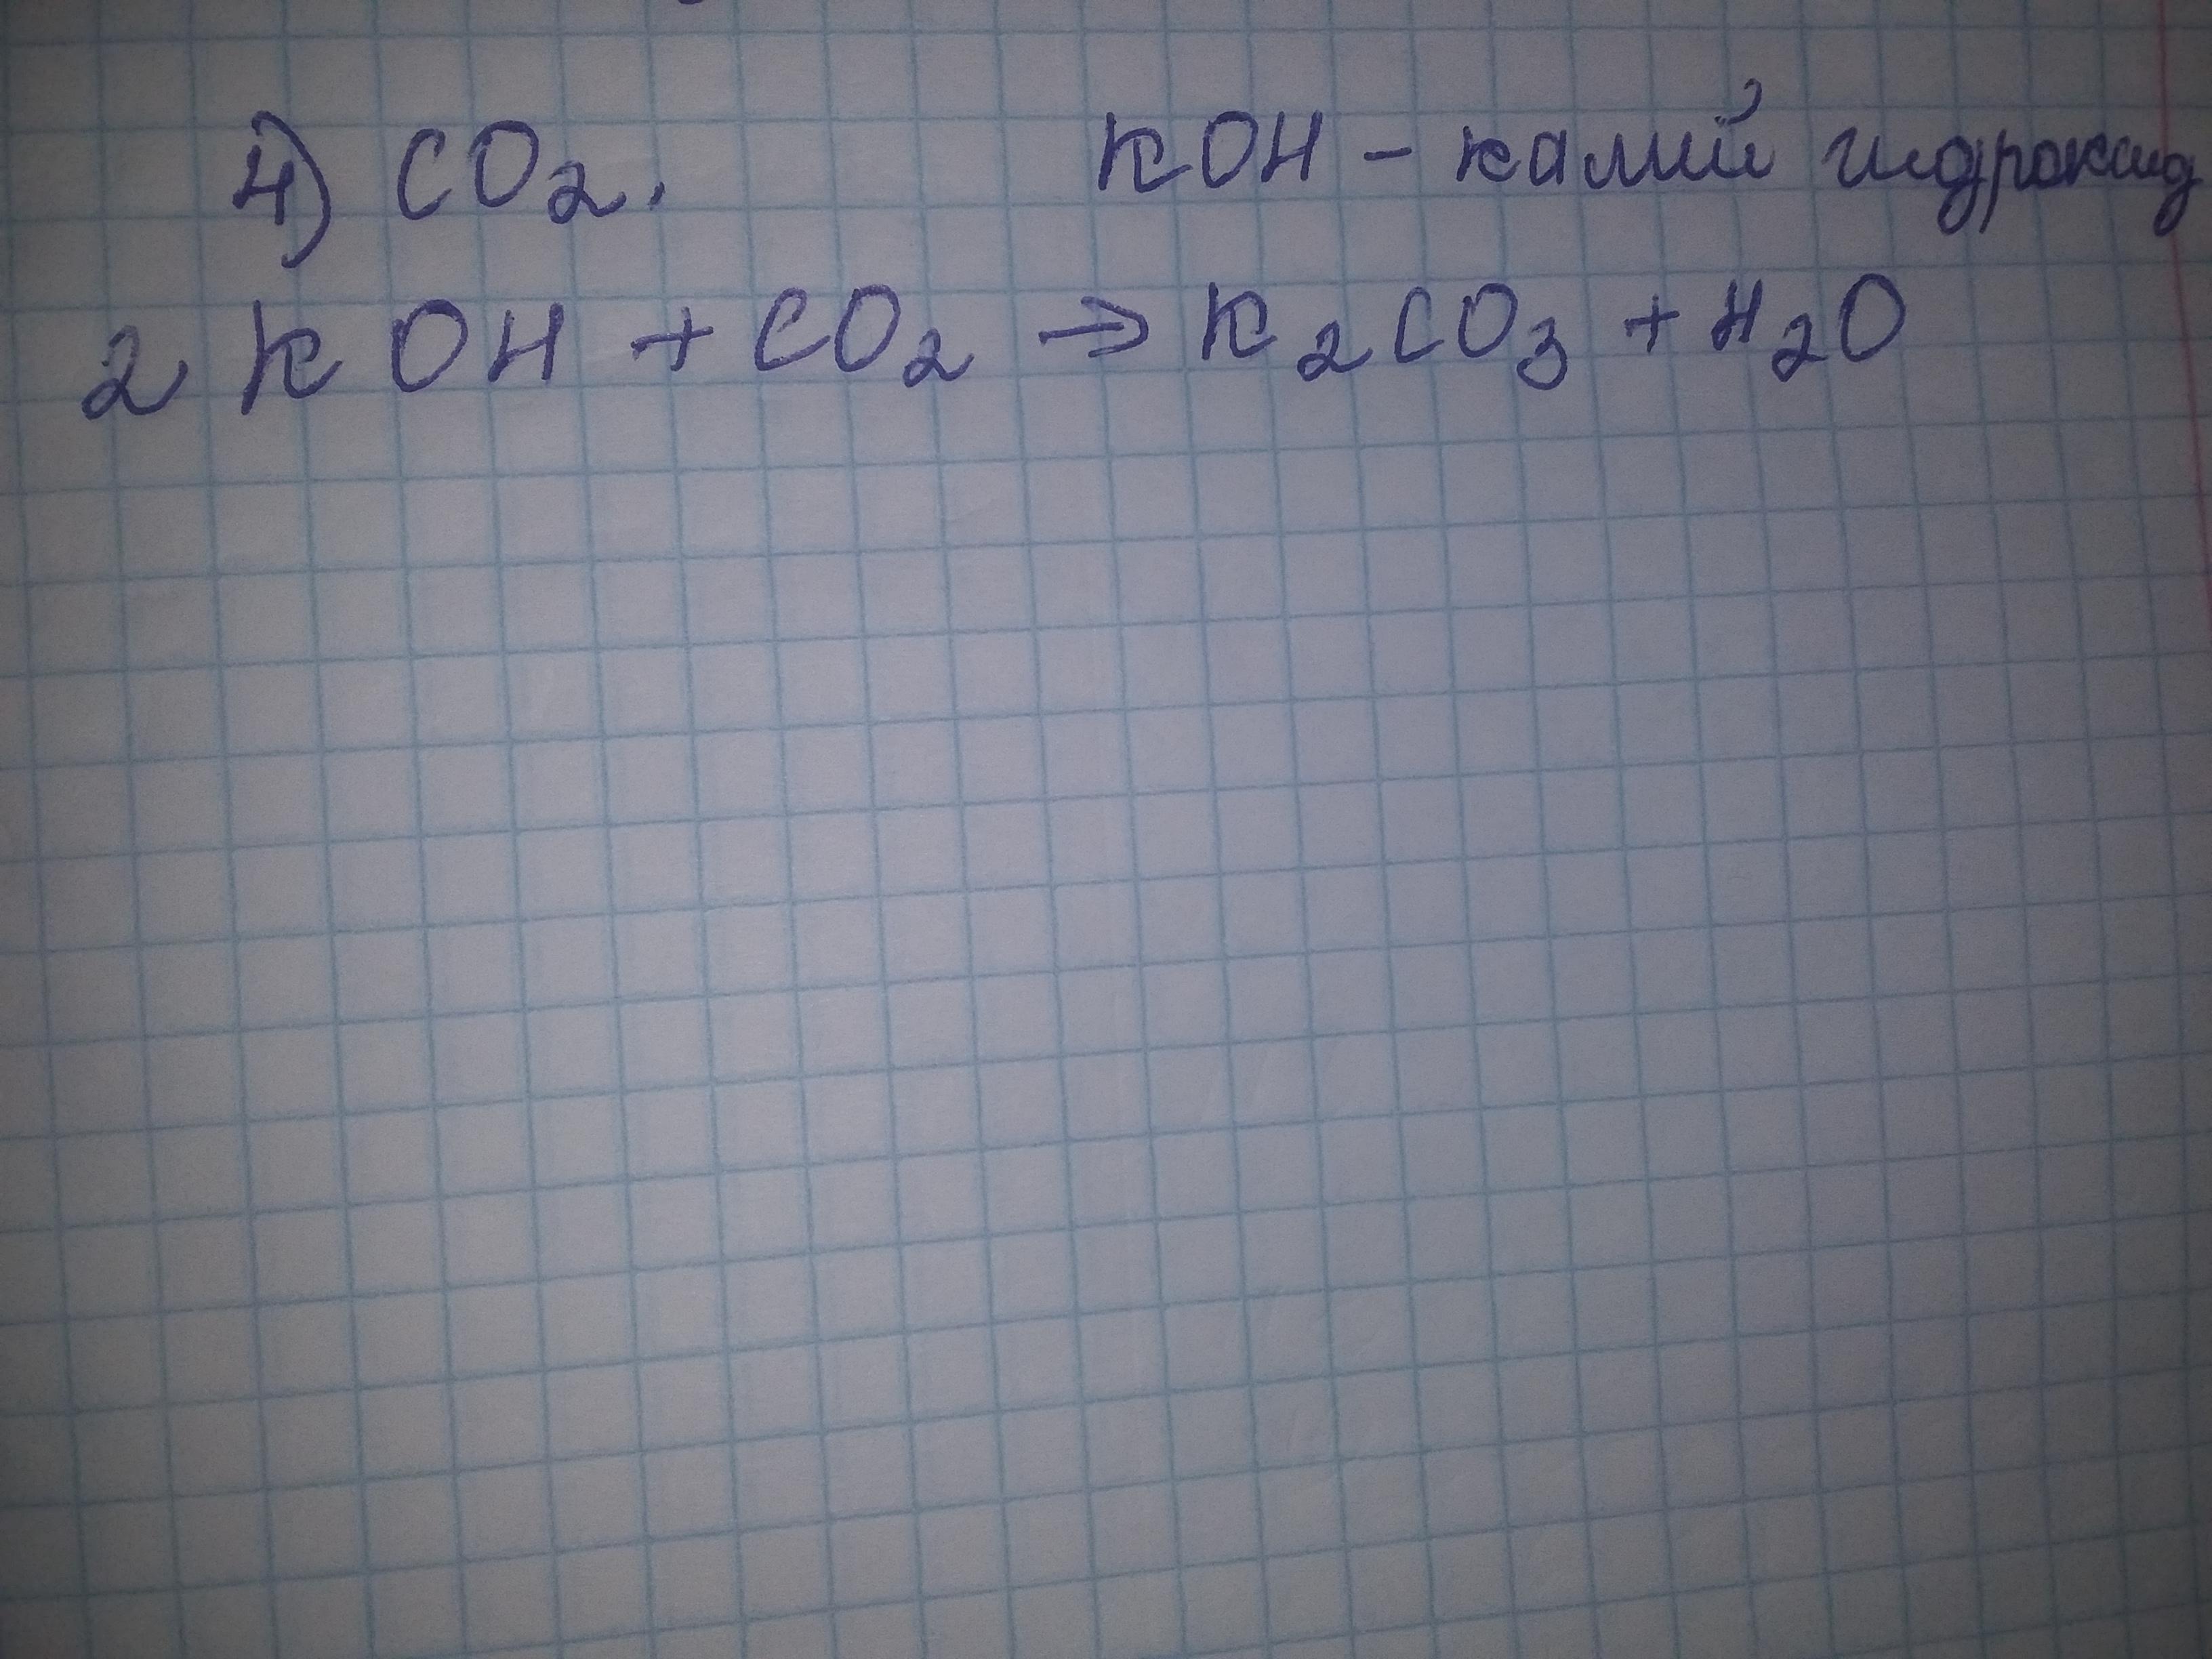 4) CO₂. KOH – калий гидроксид
2 KOH + CO₂ → K₂CO₃ + H₂O